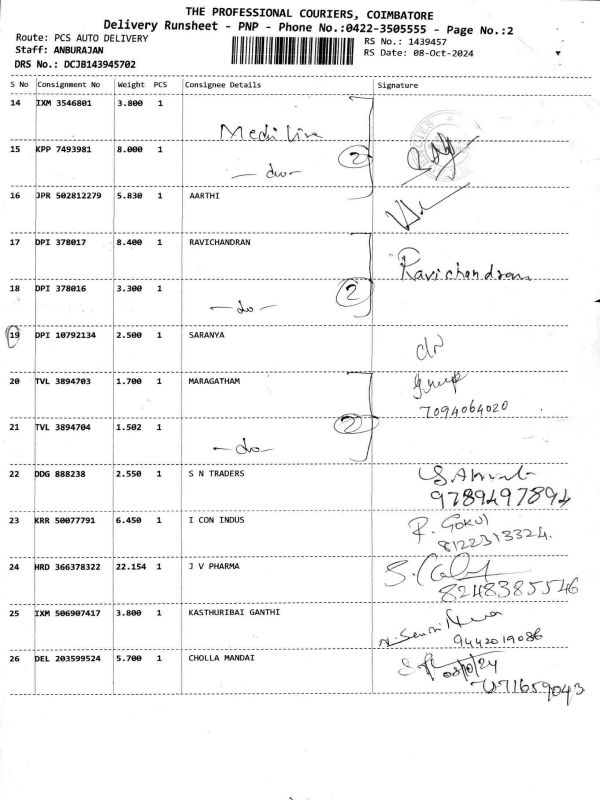 THE PROFESSIONAL COURIERS, COIMBATORE
Delivery Runsheet - PNP - Phone No.:0422-3505555 - Page No.:2
Route: PCS AUTO DELIVERY
RS No.: 1439457
Staff: ANBURAJAN
RS Date: 08-Oct-2024
DRS No.: DCJB143945702
S No Consignment No Weight PCS Consignee Details Signature
14 IXM 3546801 3.800 1
Medi Line
15 KPP 7493981 8.000 1
— do — 2
16 JPR 502812279 5.830 1 AARTHI
17 DPI 378017 8.400 1 RAVICHANDRAN
Ravichandran
18 DPI 378016 3.300 1
— do — 2
19 DPI 10792134 2.500 1 SARANYA
20 TVL 3894703 1.700 1 MARAGATHAM
7094064020
21 TVL 3894704 1.502 1
— do — 2
22 DDG 888238 2.550 1 S N TRADERS
9789497894
23 KRR 50077791 6.450 1 I CON INDUS
R. GOKUl
8122313324.
24 HRD 366378322 22.154 1 J V PHARMA
8248385546
25 IXM 506907417 3.800 1 KASTHURIBAI GANTHI
9442019086
26 DEL 203599524 5.700 1 CHOLLA MANDAI
08/10/24